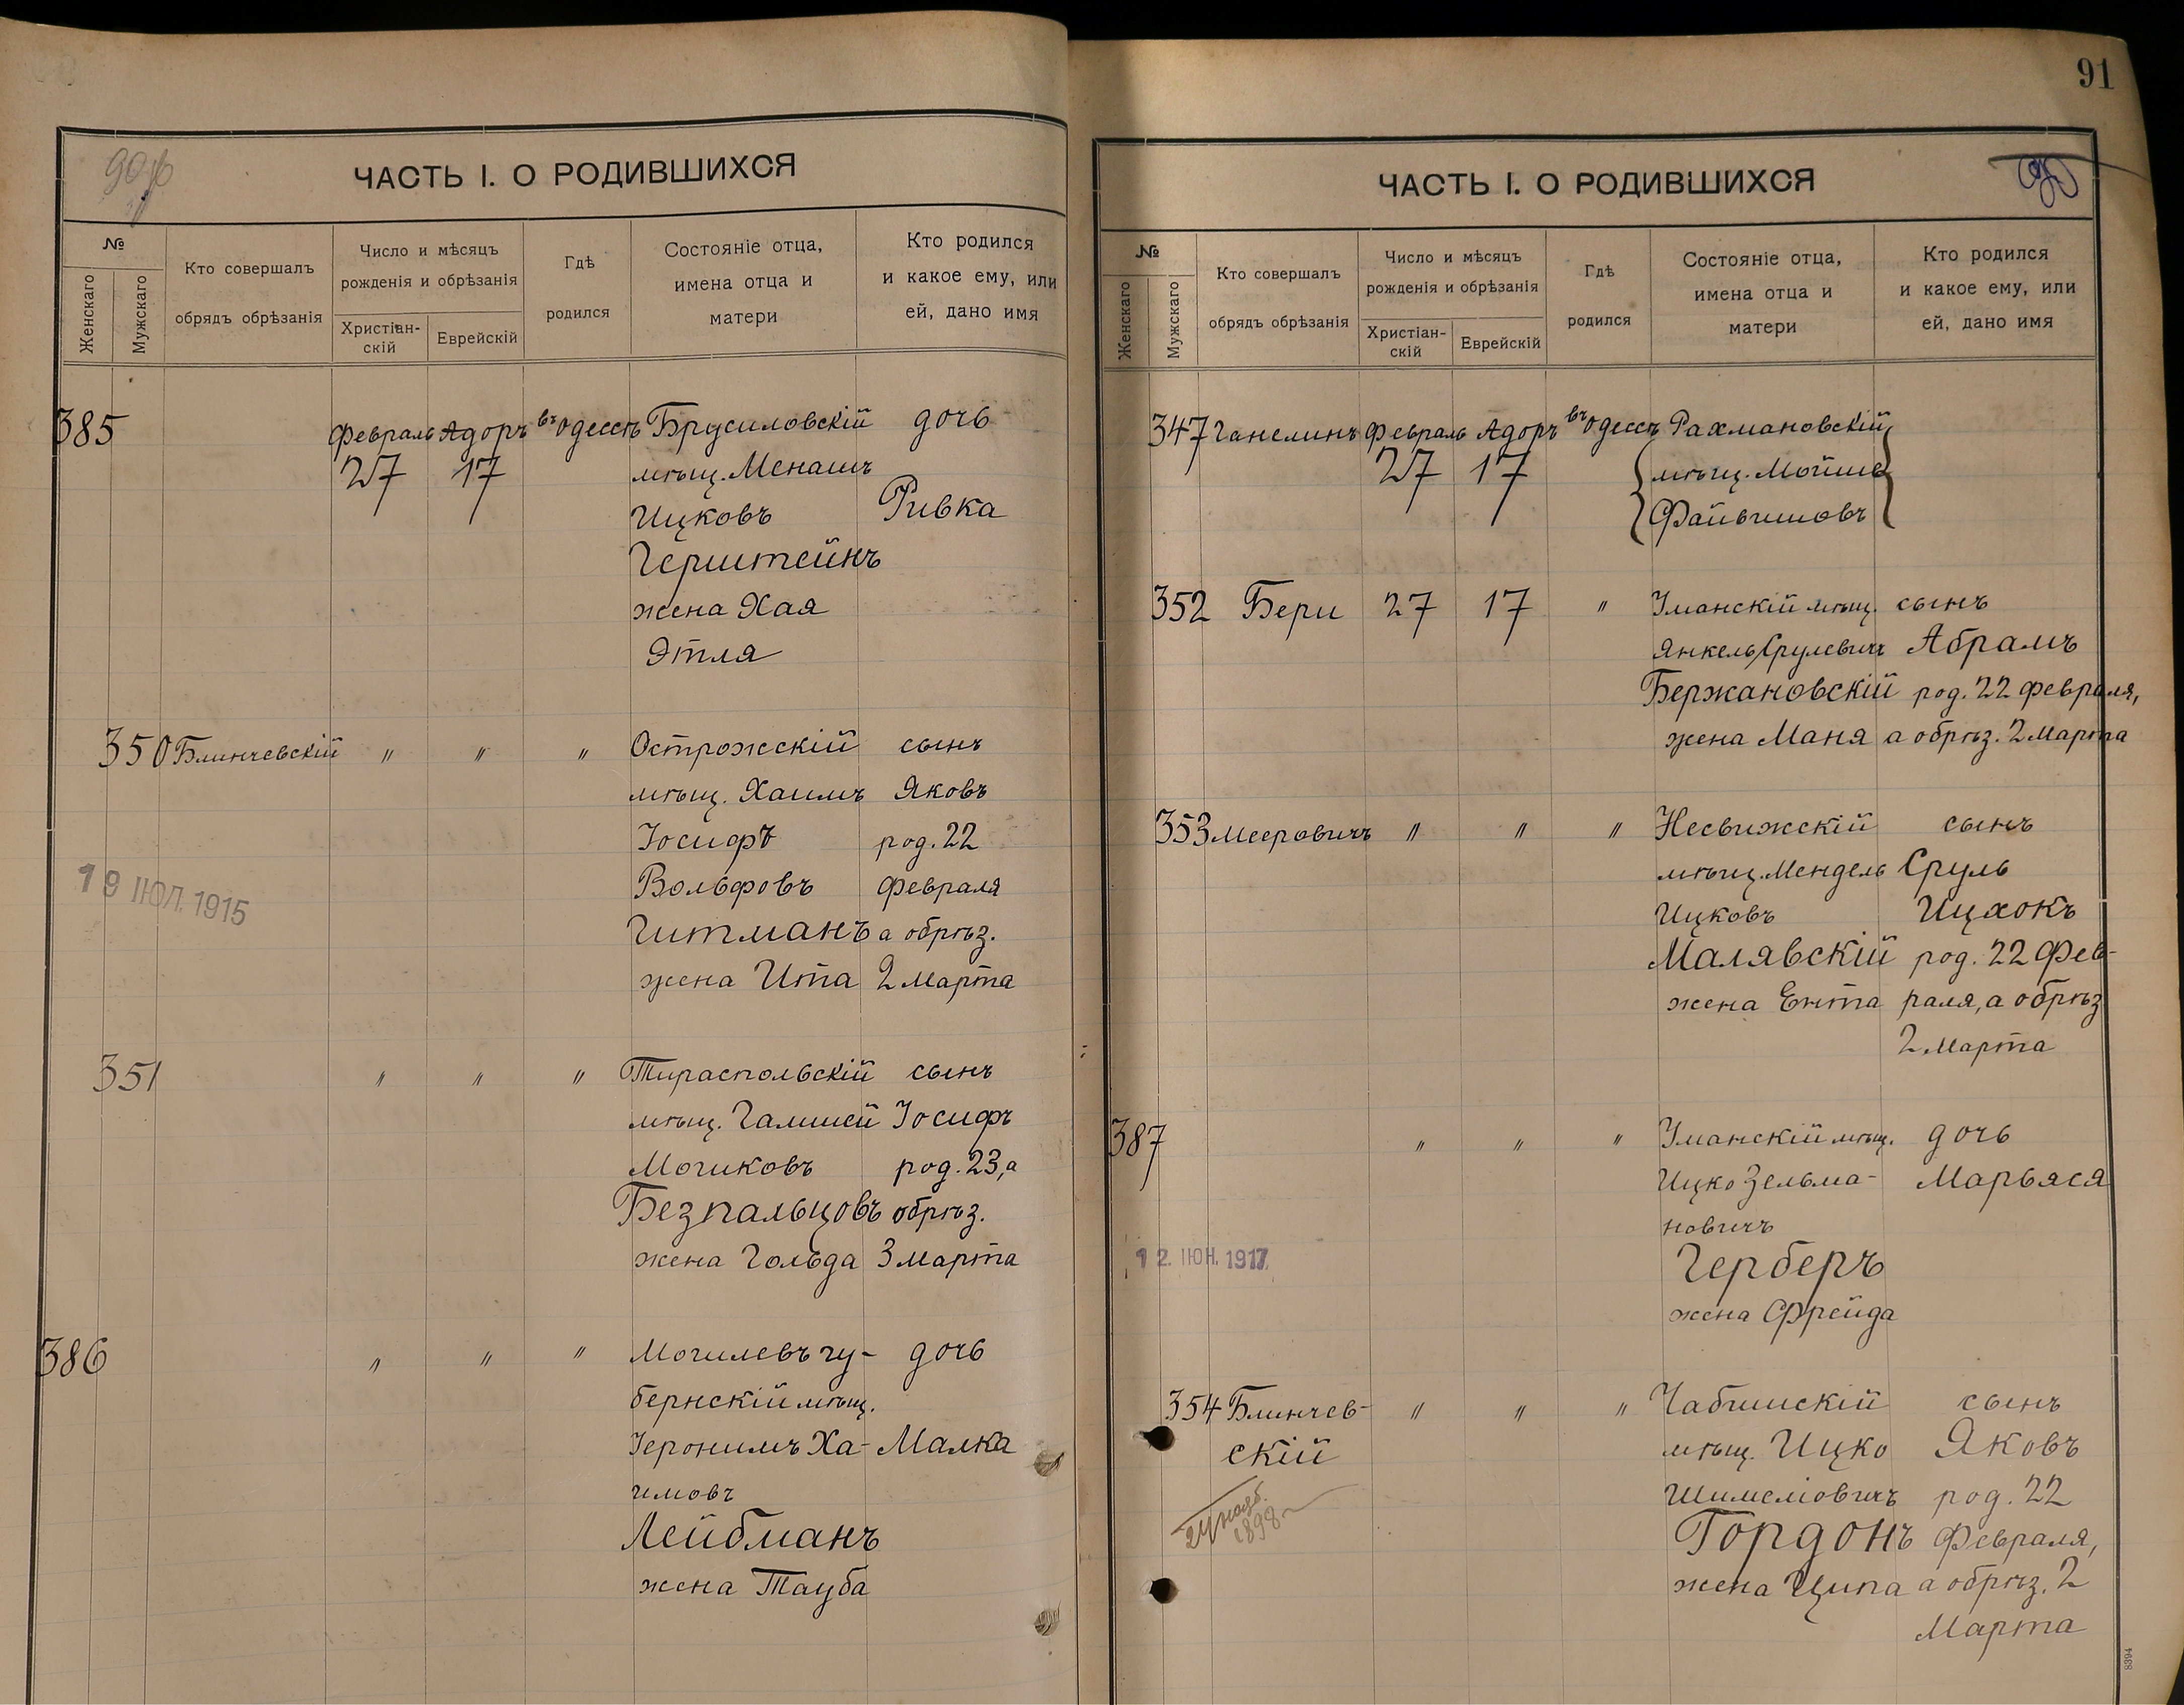 91
ЧАСТЬ I. О РОДИВШИХСЯ
№
Женскаго
Мужскаго
Кто совершалъ
обрядъ обрѣзанія
Число и мѣсяцъ
рожденія и обрѣзанія
Христіан-
скій
Еврейскій
Гдѣ
родился
Состояніе отца,
имена отца и
матери
Кто родился
и какое ему, или
ей, дано имя
385 Февраль Адоръ въ Одессѣ Брусиловскій дочь
27 17 мѣщ. Менашъ
Ицковъ Ривка
Герштейнъ
жена Хая
Этля
350 Блинчевскій " " " Острожскій сынъ
мѣщ. Хаимъ Яковъ
Іосифъ род. 22
Вольфовъ февраля
19 ІЮЛ. 1915
Гитманъ а обрѣз.
жена Ита 2 Марта
351 " " " Тираспольскій сынъ
мѣщ. Іосифъ
род. 23, а
Безпальцовъ обрѣз.
жена Гольда 3 Марта
386 " " " Могилевъ гу- дочь
бернскій мѣщ.
Іеронимъ Ха- Малка
имовъ
Лейбманъ
жена Тауба
ЧАСТЬ I. О РОДИВШИХСЯ
№
Женскаго
Мужскаго
Кто совершалъ
обрядъ обрѣзанія
Число и мѣсяцъ
рожденія и обрѣзанія
Христіан-
скій
Еврейскій
Гдѣ
родился
Состояніе отца,
имена отца и
матери
Кто родился
и какое ему, или
ей, дано имя
347 Ганелинъ Февраль Адоръ въ Одессѣ Рахмановскій
27 17 мѣщ. Мойше
Файвишовъ
352 Бери 27 17 " Уманскій мѣщ. сынъ
Янкель Срулевичъ Абрамъ
Бержановскій род. 22 февраля,
жена Маня а обрѣз. 2 Марта
353 Мееровичъ " " " Несвижскій сынъ
мѣщ. Мендель Сруль
Ицковъ Ицхокъ
Малявскій род. 22 Фев-
жена Ента раля, а обрѣз
2 Марта
387 " " " Уманскій мѣщ. дочь
Ицко Зельма- Марьяся
новичъ
12. ІЮН. 1917
Герберъ
жена Фрейда
354 Блинчев- " " " сынъ
скій мѣщ. Ицко Яковъ
Шимеліовичъ род. 22
1898
Гордонъ Февраля,
жена Ципа а обрѣз. 2
Марта
8394